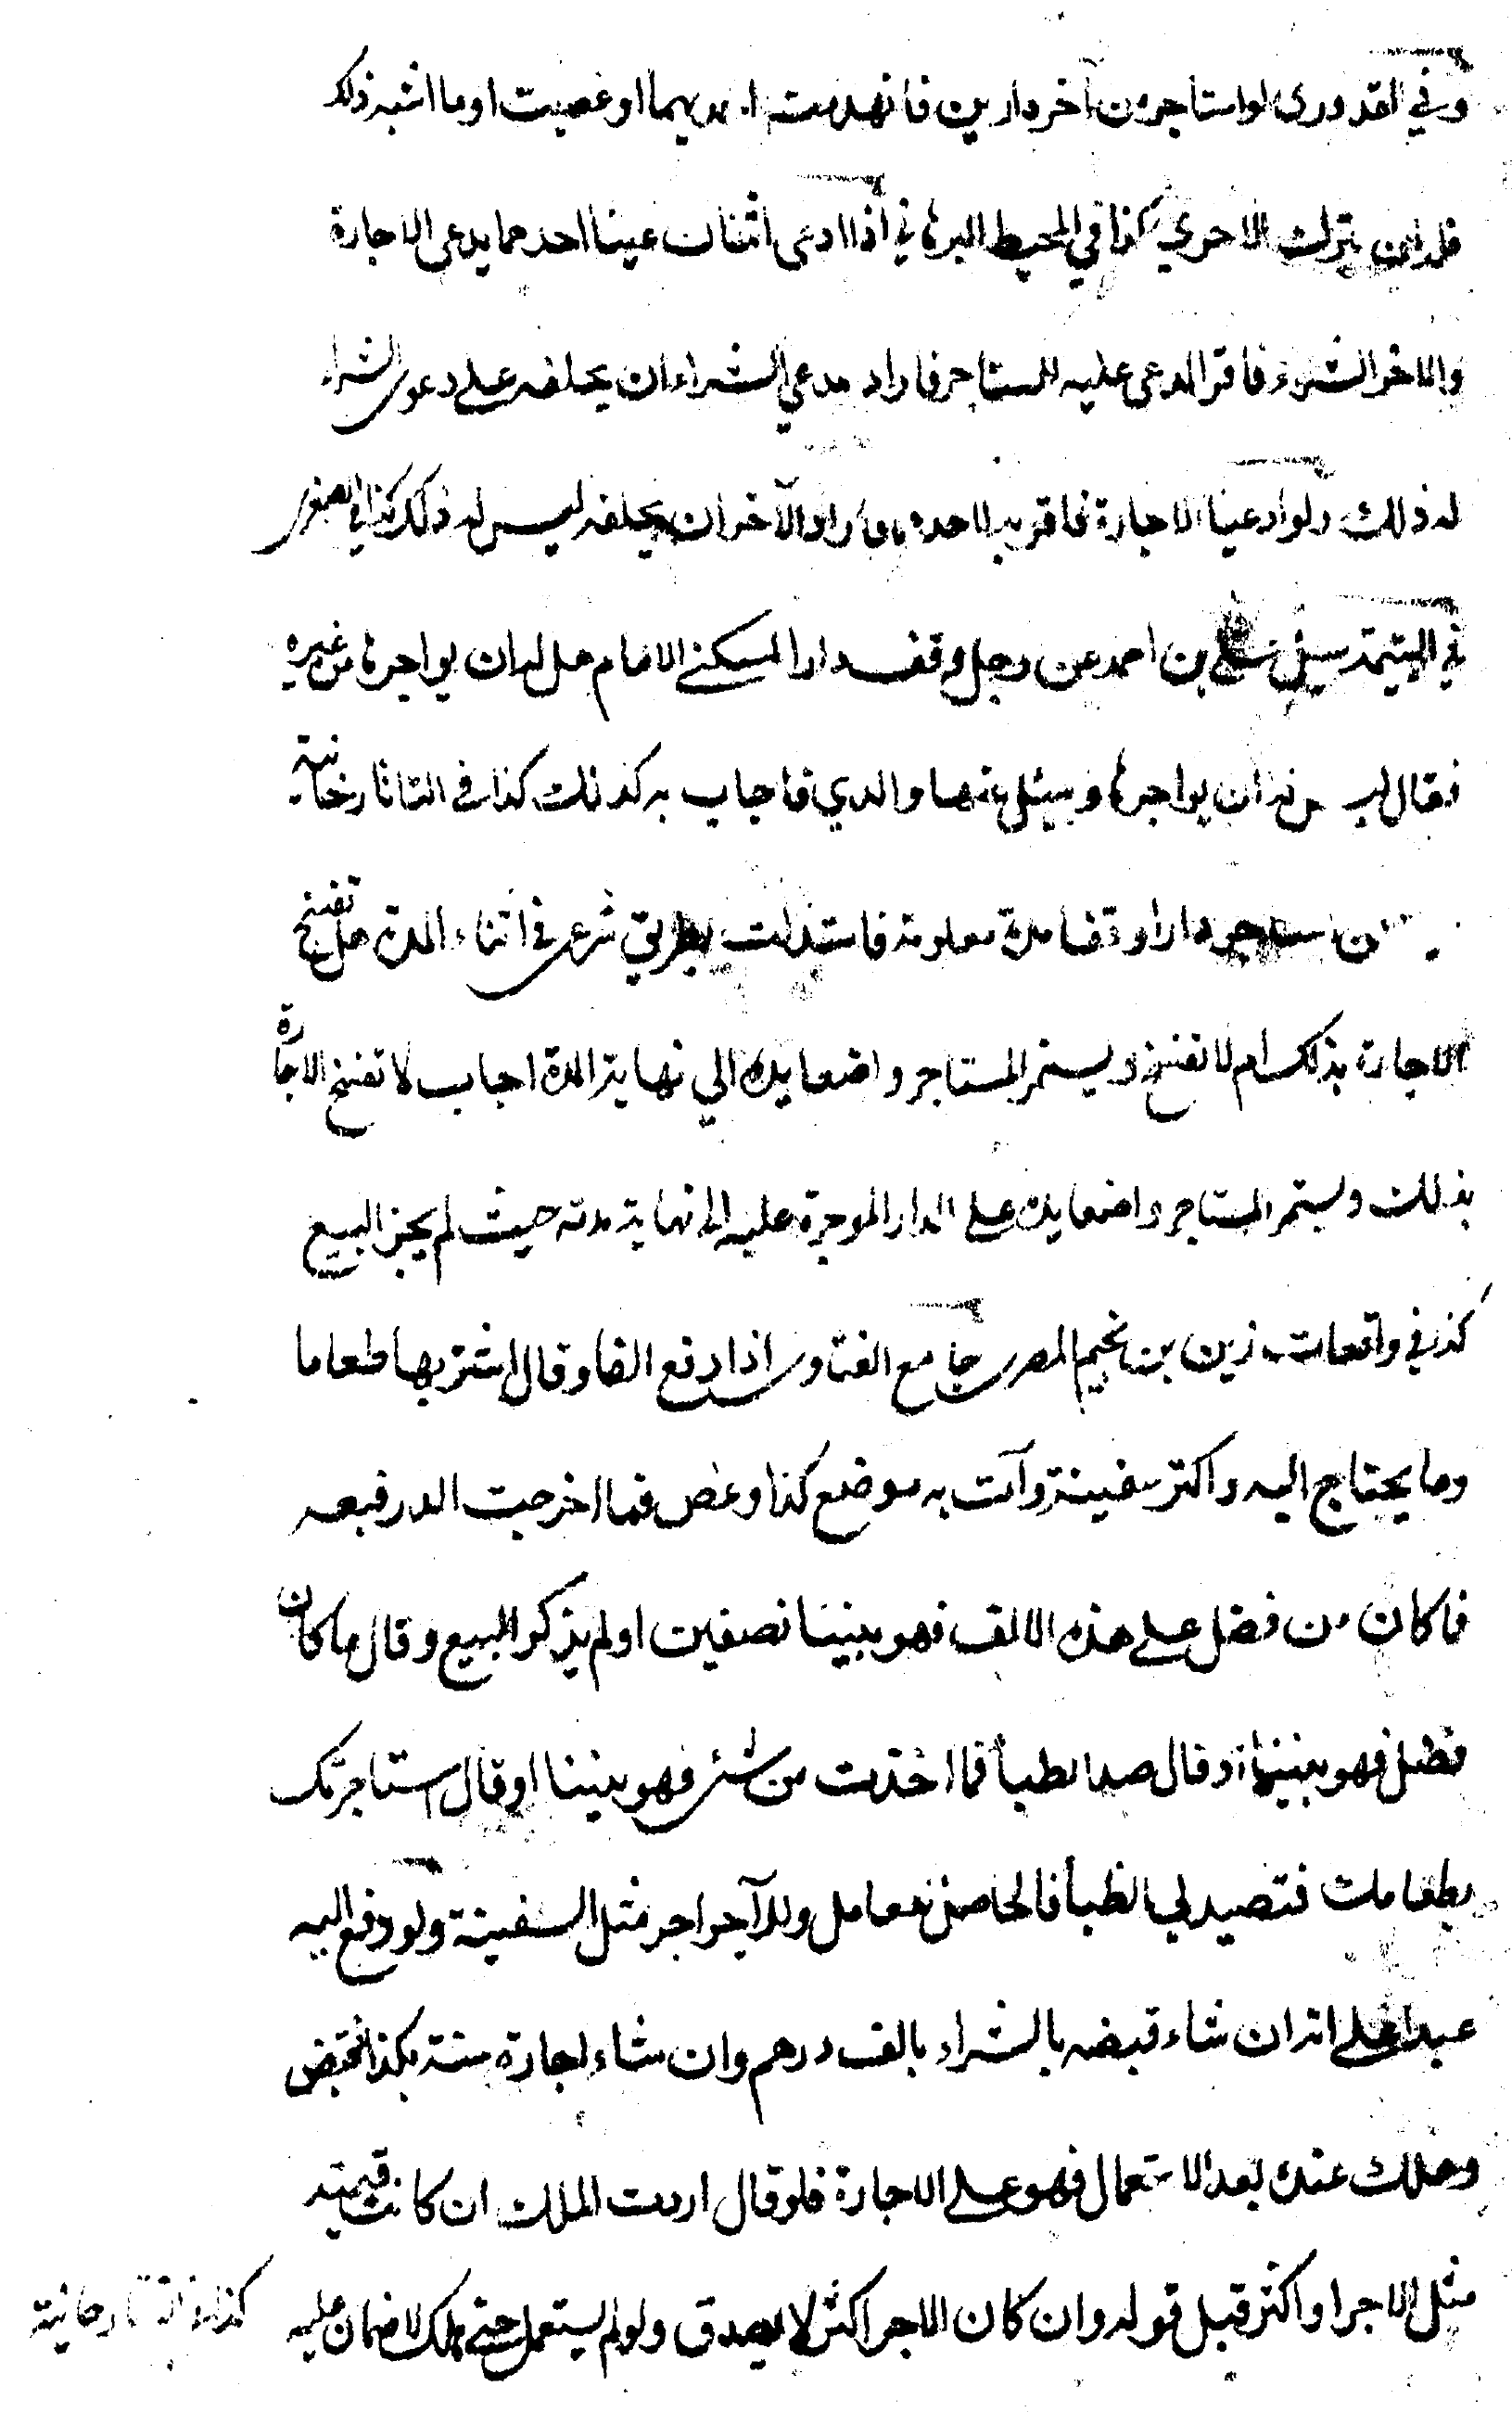 وفي القدوري لو استاجر من آخر دارين فانهدمت احديهما او غصبت او ما اشبه ذلك
فله ان يترك الاخري كذا في المحيط البرهاني اذا ادعى اثنان عينا احدهما يدعى الاجارة
والاخر الشراء فاقر المدعى عليه للمستاجر فاراد مدعي الشراء ان يحلفه على دعوى الشراء
له ذلك ولو ادعيا الاجارة فاقر به لاحدهما واراد الآخر ان يحلفه ليس له ذلك كذا في الصغرى
في اليتيمة سئل علي بن احمد عن رجل وقف دارا لسكنى الامام هل له ان يواجرها من غيره
فقال ليس له ان يواجرها وسئل عنها والدي فاجاب به كذلك كذا في التاتارخانية
استاجر دارا وقفا مدة معلومة فاستبدلت بطريق شرعى في اثناء المدة هل تفسخ
الاجارة بذلك ام لا تفسخ ويستمر المستاجر واضعا يده الي نهاية المدة اجاب لا تفسخ الاجارة
بذلك ويستمر المستاجر واضعا يده على الدار الموجرة عليه الى نهاية مدته حيث لم يجز البيع
كذا في واقعات زين بن نجيم المصرى جامع الفتاوى اذا دفع الفا وقال اشتر بها طعاما
وما يحتاج اليه واكتر سفينة وآت به موضع كذا وغص فما اخرجت الدر فبعه
فما كان من فضل على هذه الالف فهو بيننا نصفين او لم يذكر البيع وقال ما كان
فضل فهو بيننا او قال صد الظبأ فما اخذت من شئ فهو بيننا او قال استاجرتك
بطعامك فتصيد لي الظبأ فالحاصل للعامل وللآجر اجر مثل السفينة ولو دفع اليه
عبدا على انه ان شاء قبضه بالشراء بالف درهم وان شاء اجارة سنة بكذا فقبض
وهلك عنده بعد الاستعمال فهو على الاجارة فلو قال اردت الملك ان كانت قيمته
مثل الاجر او اكثر قبل قوله وان كان الاجر اكثر لا يصدق ولو لم يستعمل حتى هلك لا ضمان عليه كذا في التاتارخانية